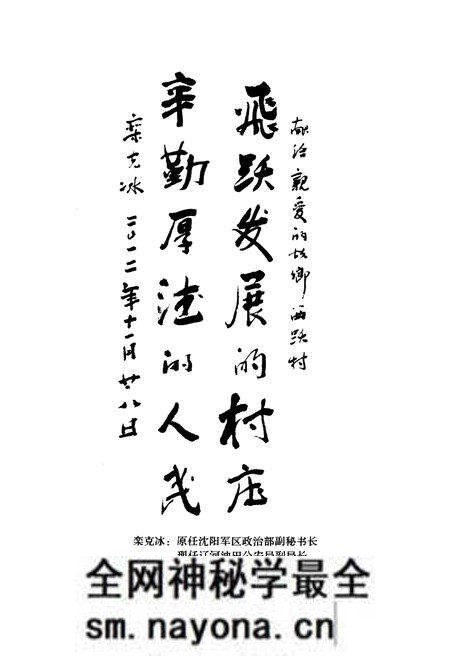 献给亲爱的故乡西跃村
飛跃发展的村庄
辛勤厚德的人民
栾克冰 二〇一二年十一月廿八日
栾克冰：原任沈阳军区政治部副秘书长
现任辽河油田公安局副局长
全网神秘学最全
sm.nayona.cn